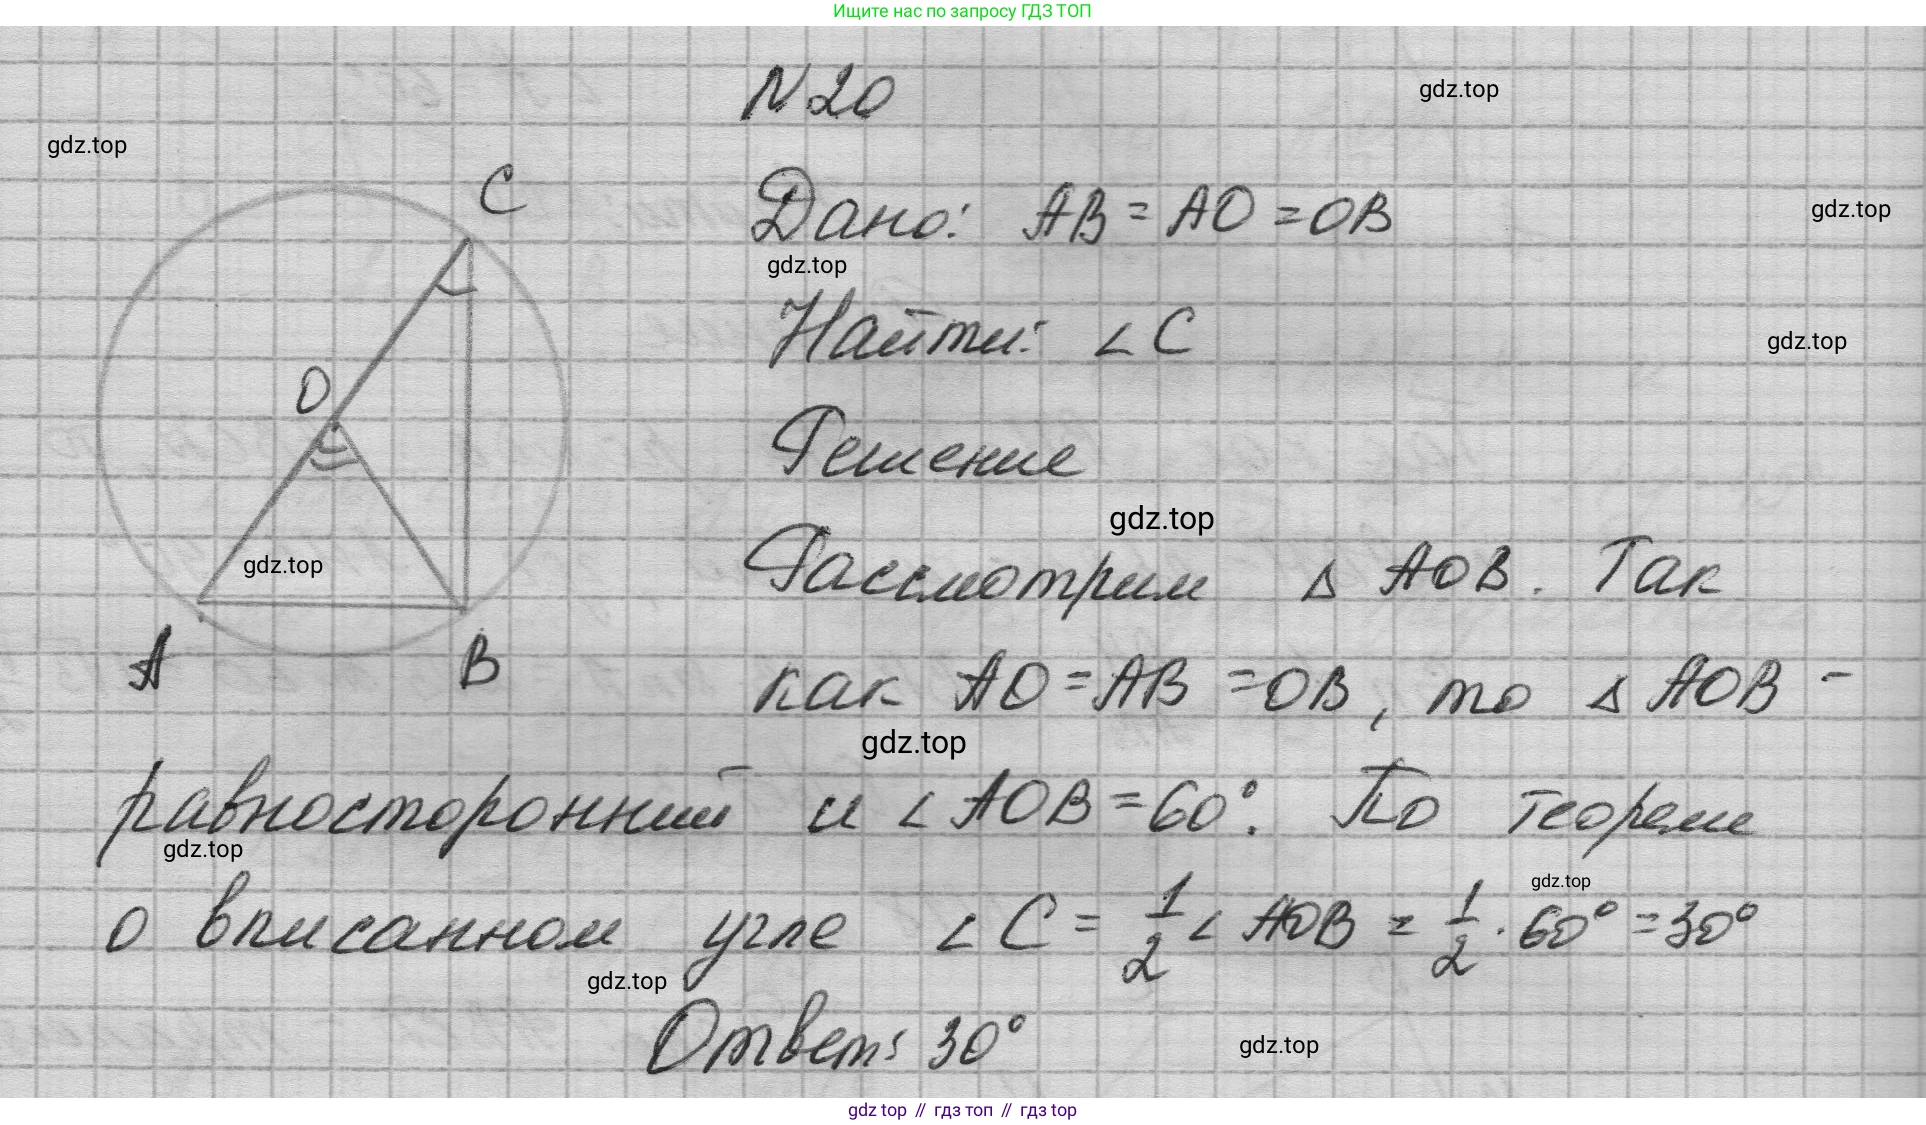 Ищите нас по запросу ГДЗ ТОП
N20
gdz.top
gdz.top
C
Дано: AB = AO = OB
gdz.top
gdz.top
Найти: ∠C
gdz.top
O
Решение
gdz.top
Рассмотрим Δ AOB. Так
gdz.top
A
B
как AO = AB = OB, то Δ AOB -
gdz.top
равносторонний и ∠AOB = 60°. По теореме
gdz.top
gdz.top
о вписанном угле ∠C = 1/2 ∠AOB = 1/2 · 60° = 30°
gdz.top
Ответ: 30°
gdz.top
gdz.top // гдз топ // гдз top